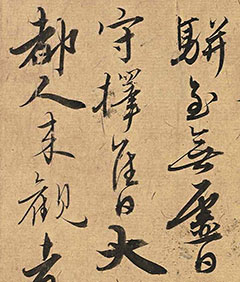 駢至無虛日
守擇佳日大
都人來觀者